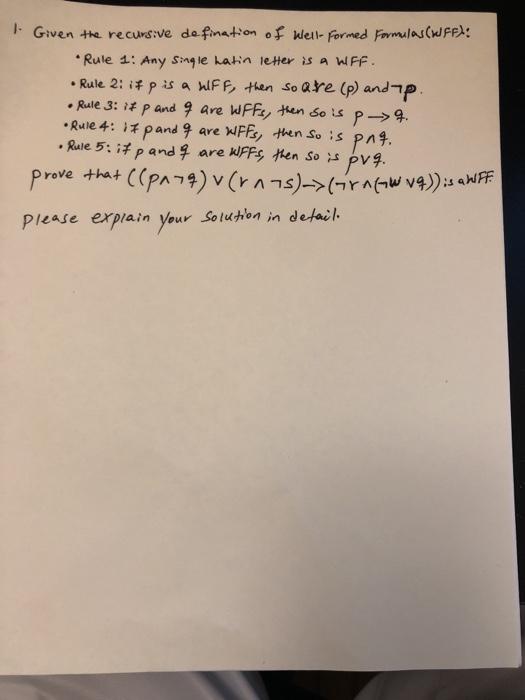 1. Given the recursive defination of Well-Formed Formulas(WFF):
• Rule 1: Any single Latin letter is a WFF.
• Rule 2: if p is a WFF, then so are (p) and ¬p.
• Rule 3: if p and q are WFFs, then so is p → q.
• Rule 4: if p and q are WFFs, then so is p ∧ q.
• Rule 5: if p and q are WFFs, then so is p ∨ q.
prove that ((p ∧ ¬q) ∨ (r ∧ ¬s) -> (¬r ∧ (¬w ∨ q)) is a WFF.
please explain your solution in detail.